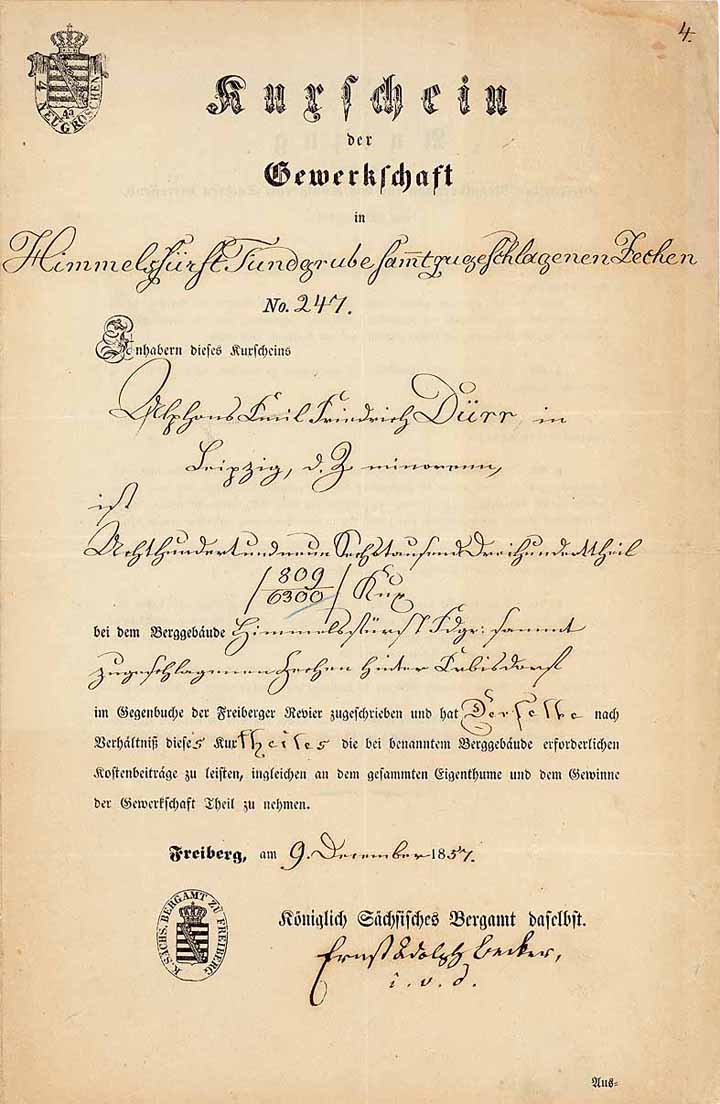 4.
4 NEUGROSCHEN
Kuxschein
der
Gewerkschaft
in
Himmelsfürst Fundgrube sam̅t zugeschlagenen Zechen
No. 247.
Inhabern dieses Kuxscheins
Alphons Emil Friedrich Dürr, in
Leipzig, d. Z. minorenn,
ist
Achthundertundneun Sechstausend Dreihunderttheil
/ 809/6300 / Kux
bei dem Berggebäude Himmelsfürst Fdgr: sammt
zugeschlagenen Zechen hinter Erbisdorf
im Gegenbuche der Freiberger Revier zugeschrieben und hat Derselbe nach
Verhältniß dieses Kuxtheiles die bei benanntem Berggebäude erforderlichen
Kostenbeiträge zu leisten, ingleichen an dem gesammten Eigenthume und dem Gewinne
der Gewerkschaft Theil zu nehmen.
Freiberg, am 9. December 1857.
K. SÄCHS. BERGAMT ZU FREIBERG
Königlich Sächsisches Bergamt daselbst.
Ernst Adolph Becker,
i. v. d.
Aus=